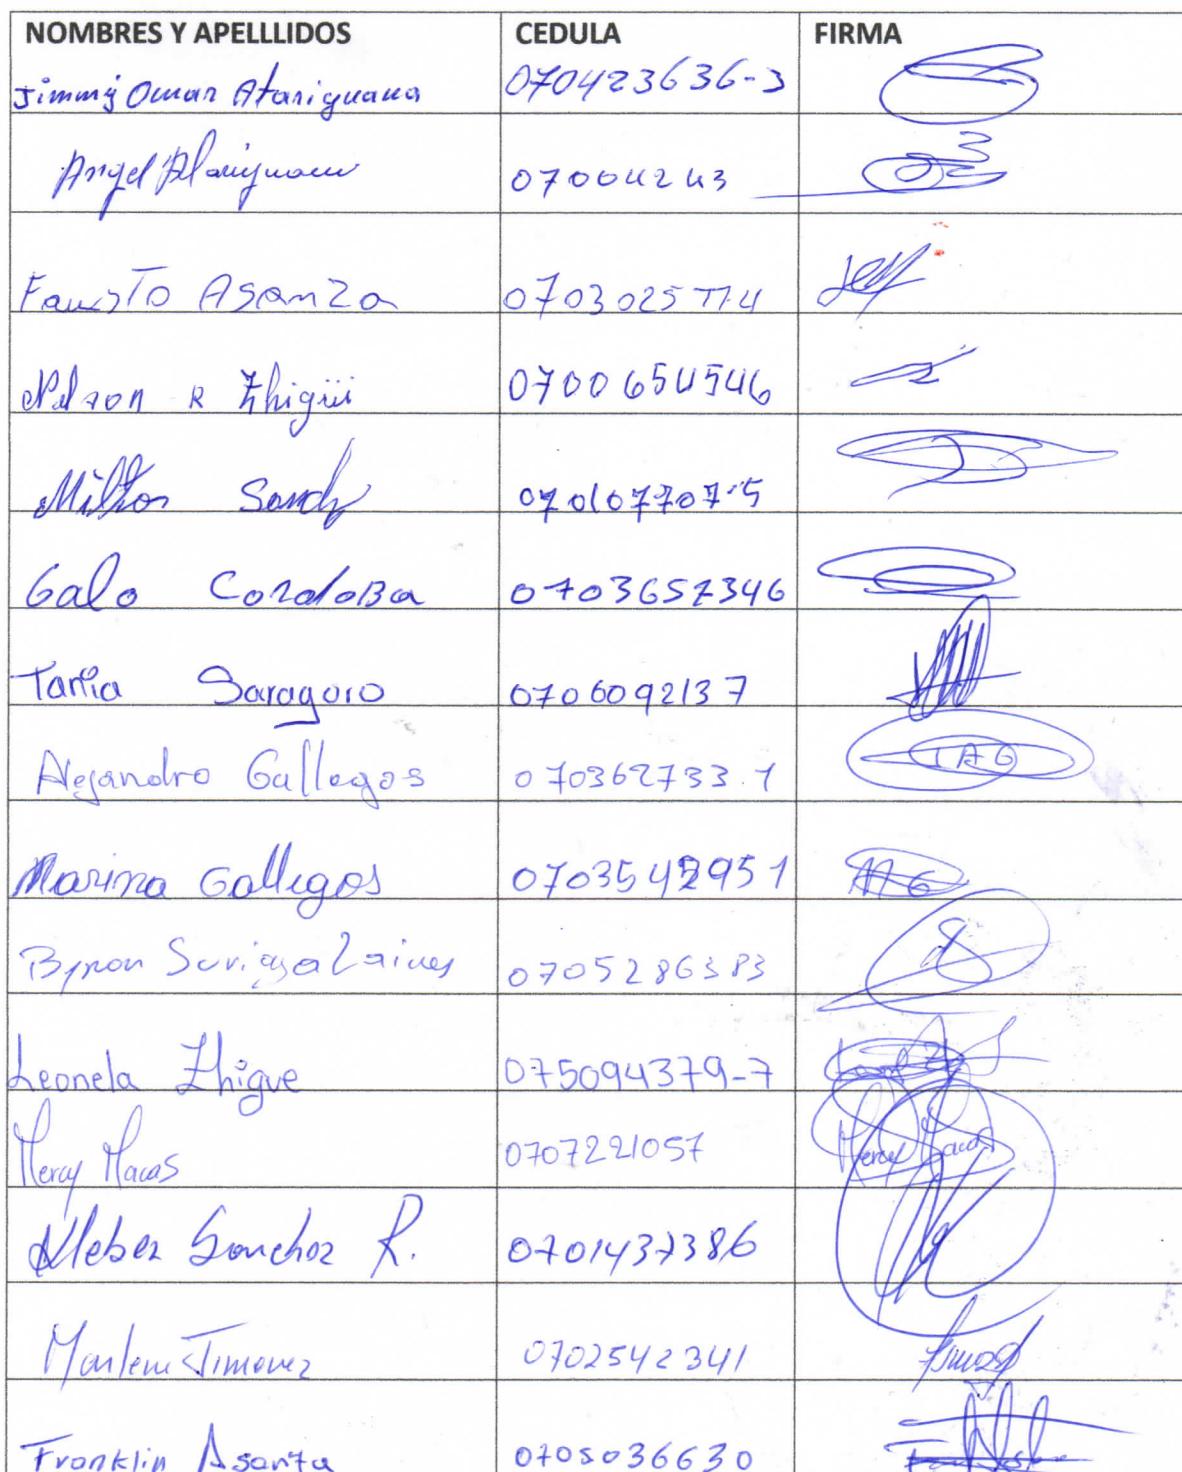 NOMBRES Y APELLLIDOS CEDULA FIRMA
Jimmy Omar Atariguana 070423636-3
Angel Atariguana 07004243
Fausto Asanza 0703025774
Nelson R Zhigüi 0700654546
Milton Sanch 070107707-5
Galo CordoBa 0703657346
Tania Saragoro 0706092137
Alejandro Gallegos 070362733.1 JAG
Marina Gallegos 0703542951 MG
Byron 0705286383
Leonela Zhigue 075094379-7
Mercy Macas 0707221057 Mercy Macas
Kleber Sanchez R. 0701437386
Marlene Jimenez 0702542341
Franklin Asanza 0705036630